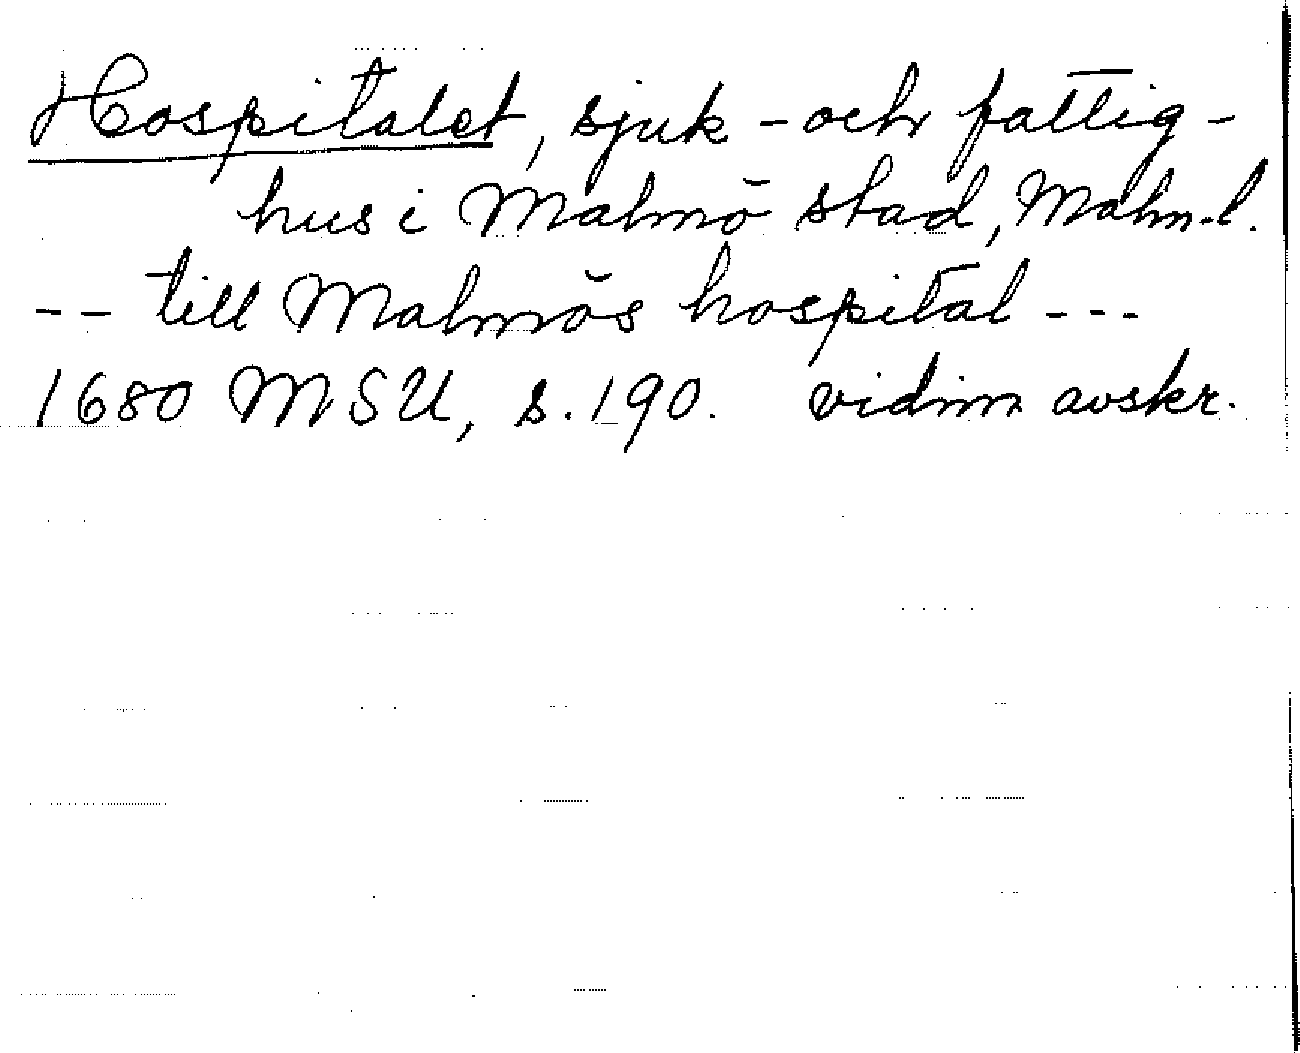 Hospitalet, sjuk - och fattig -
hus i Malmö stad, Malm.l.
-- till Malmös hospital ---
1680 MSU, s. 190. vidim avskr.